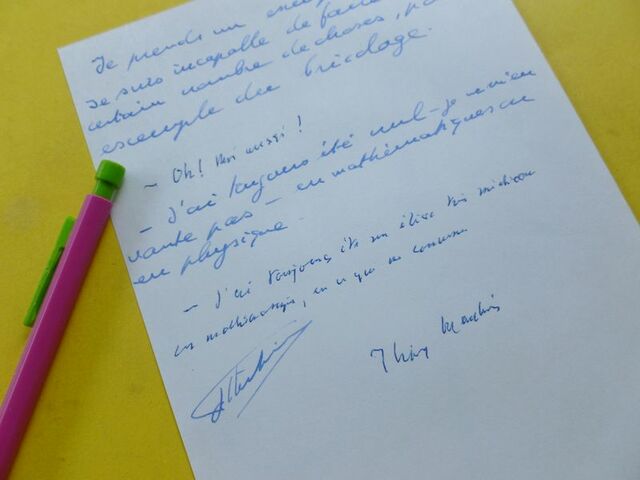 Je prends un exemp
je suis incapable de faire
certain nombre de choses, pa
exemple du bricolage.
– Oh! Moi aussi!
– J'ai toujours été nul – je ne m'en
vante pas – en mathématiques ou
en physique.
– J'ai toujours été un élève très médiocre
en mathématiques, en ce qui me concerne